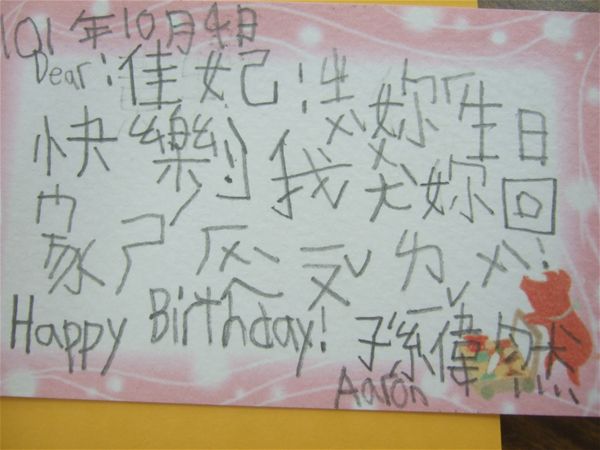 101年10月4日
Dear:佳妃!ㄓㄨˋ妳生日
快樂 我ㄨㄤˋ妳回
家ㄕˊ
Happy Birthday! 孫偉
Aaron